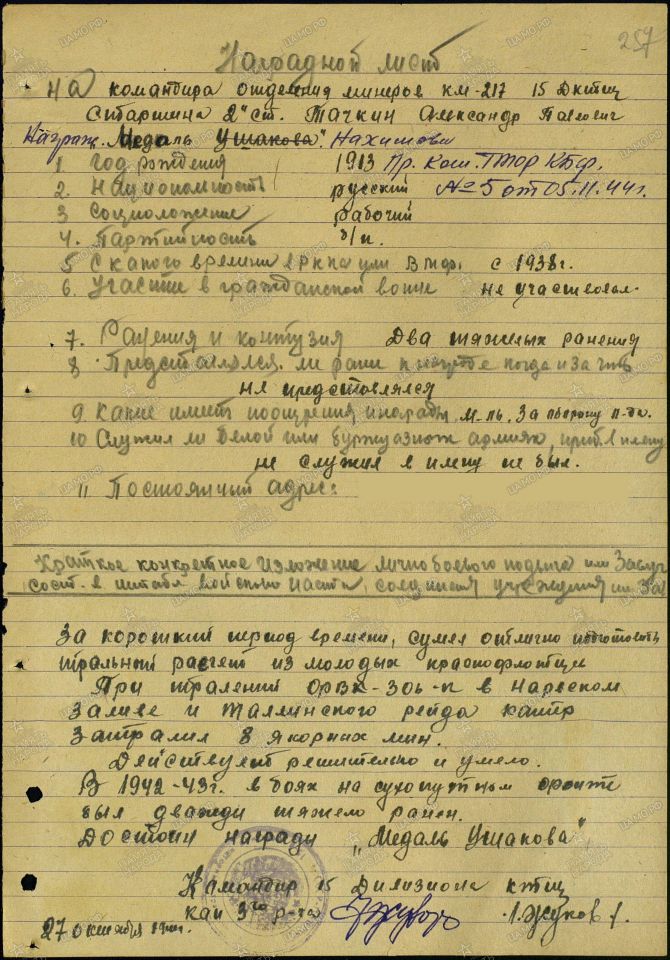 257
Наградной лист
на командира отделения минеров км-217 15 Дктщ
Старшина 2й ст. Тачкин Александр Павлович
Награж. Медаль Ушакова". Нахимова
1 Год рождения 1913 Пр. Ком. КБФ.
2. Национальность русский №5 от 05.11.44г.
3 Соцположение рабочий
4. Партийность б/п.
5 С какого времени в РККА или ВМФ. с 1938г.
6. Участие в гражданской войне не участвовал.
7. Ранения и контузия Два тяжелых ранения
8. Представлялся ли ранее к награде когда и за что
не представлялся
9 Какие имеет поощрения и награды м-ль, За оборону
10 Служил ли белой или буржуазной армиях, и был в плену
не служил в плену не был.
11 Постоянный адрес:
Краткое конкретное изложение личн боевого подвига или Заслуг
сост. в штабе войсково части, соединен учреждения
За короткий период времени, сумел отлично подготовить
тральный расчет из молодых краснофлотцев
При тралении в Нарвском
заливе и Таллинского рейда катер
затралил 8 якорных мин.
Действует решительно и умело.
В 1942-43г. в боях на сухопутном фронте
был дважды тяжело ранен.
Достоин награды „Медаль Ушакова"
Камандир 15 Дивизиона ктщ
кап 3го р-га /. Жуков /.
27 октября
ЦАМО.РФ